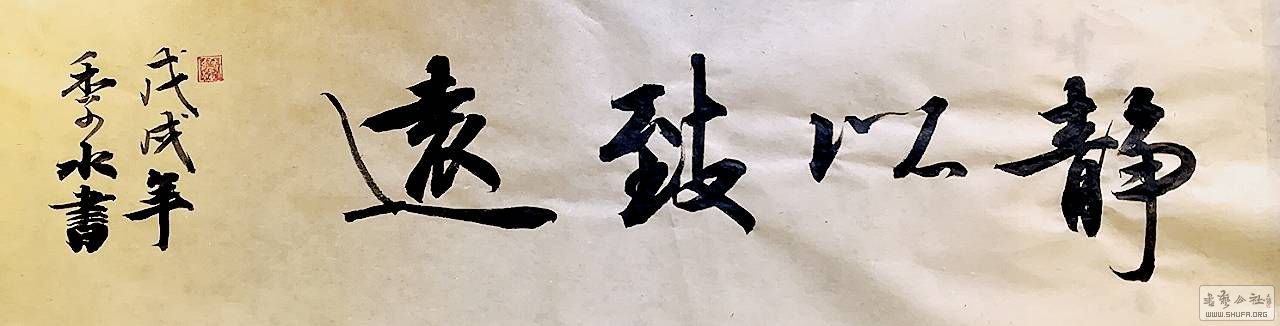 静以致遠
戊戌年
水書
书艺公社
WWW.SHUFA.ORG